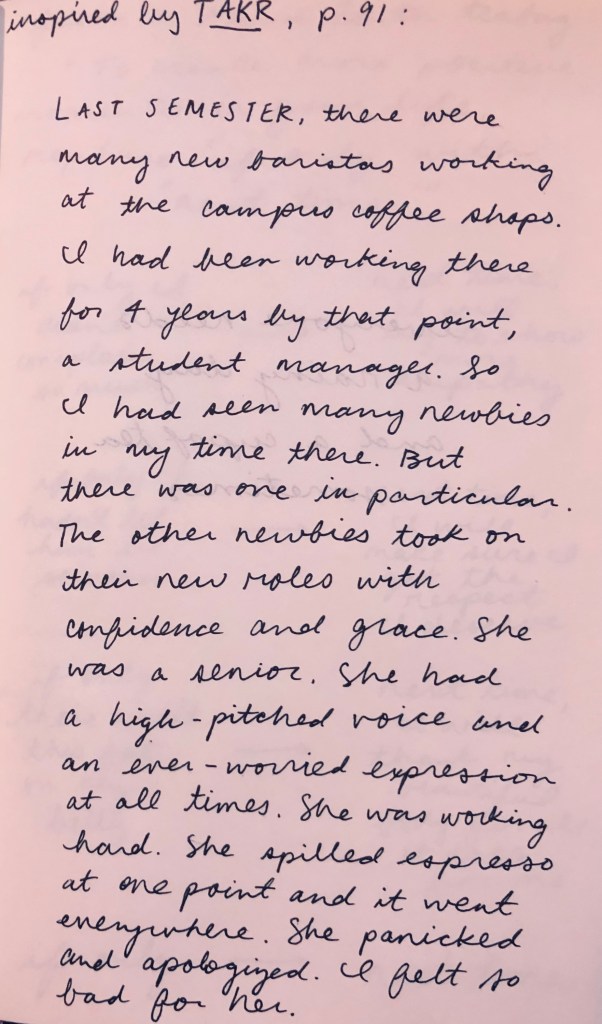 inspired by TAKR, p. 91:
LAST SEMESTER, there were
many new baristas working
at the campus coffee shops.
I had been working there
for 4 years by that point,
a student manager. So
I had seen many newbies
in my time there. But
there was one in particular.
The other newbies took on
their new roles with
confidence and grace. She
was a senior. She had
a high-pitched voice and
an ever-worried expression
at all times. She was working
hard. She spilled espresso
at one point and it went
everywhere. She panicked
and apologized. I felt so
bad for her.